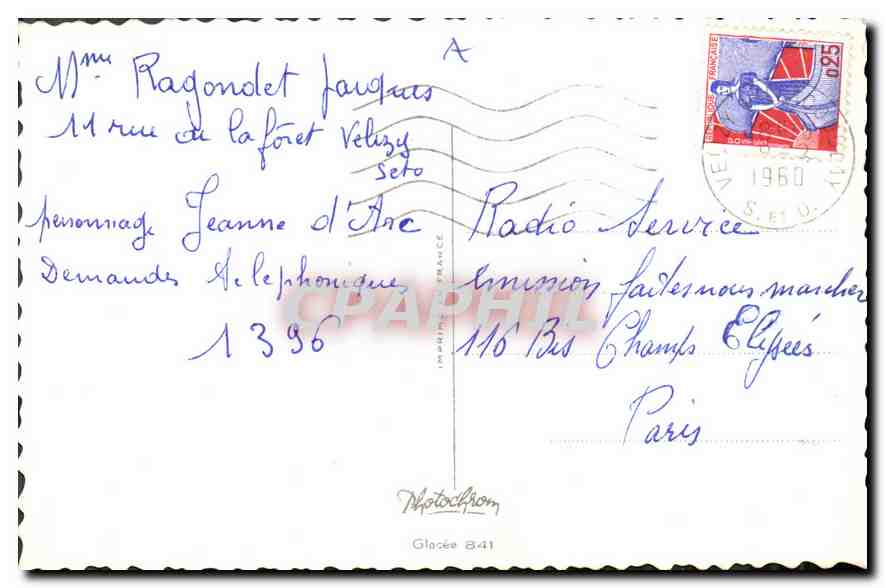 A
Mme Ragondet Jacques
11 rue de la fôret Velizy
Seto
personnage Jeanne d'Arc
Demandes telephoniques
1396
Radio Service
emission faites nous marcher
116 Bis Champs Elysées
Paris
IMPRIMÉ EN FRANCE
Photochrom
Glacée 841
RÉPUBLIQUE FRANÇAISE
0,25
1960
S. ET O.
CPAPHIL